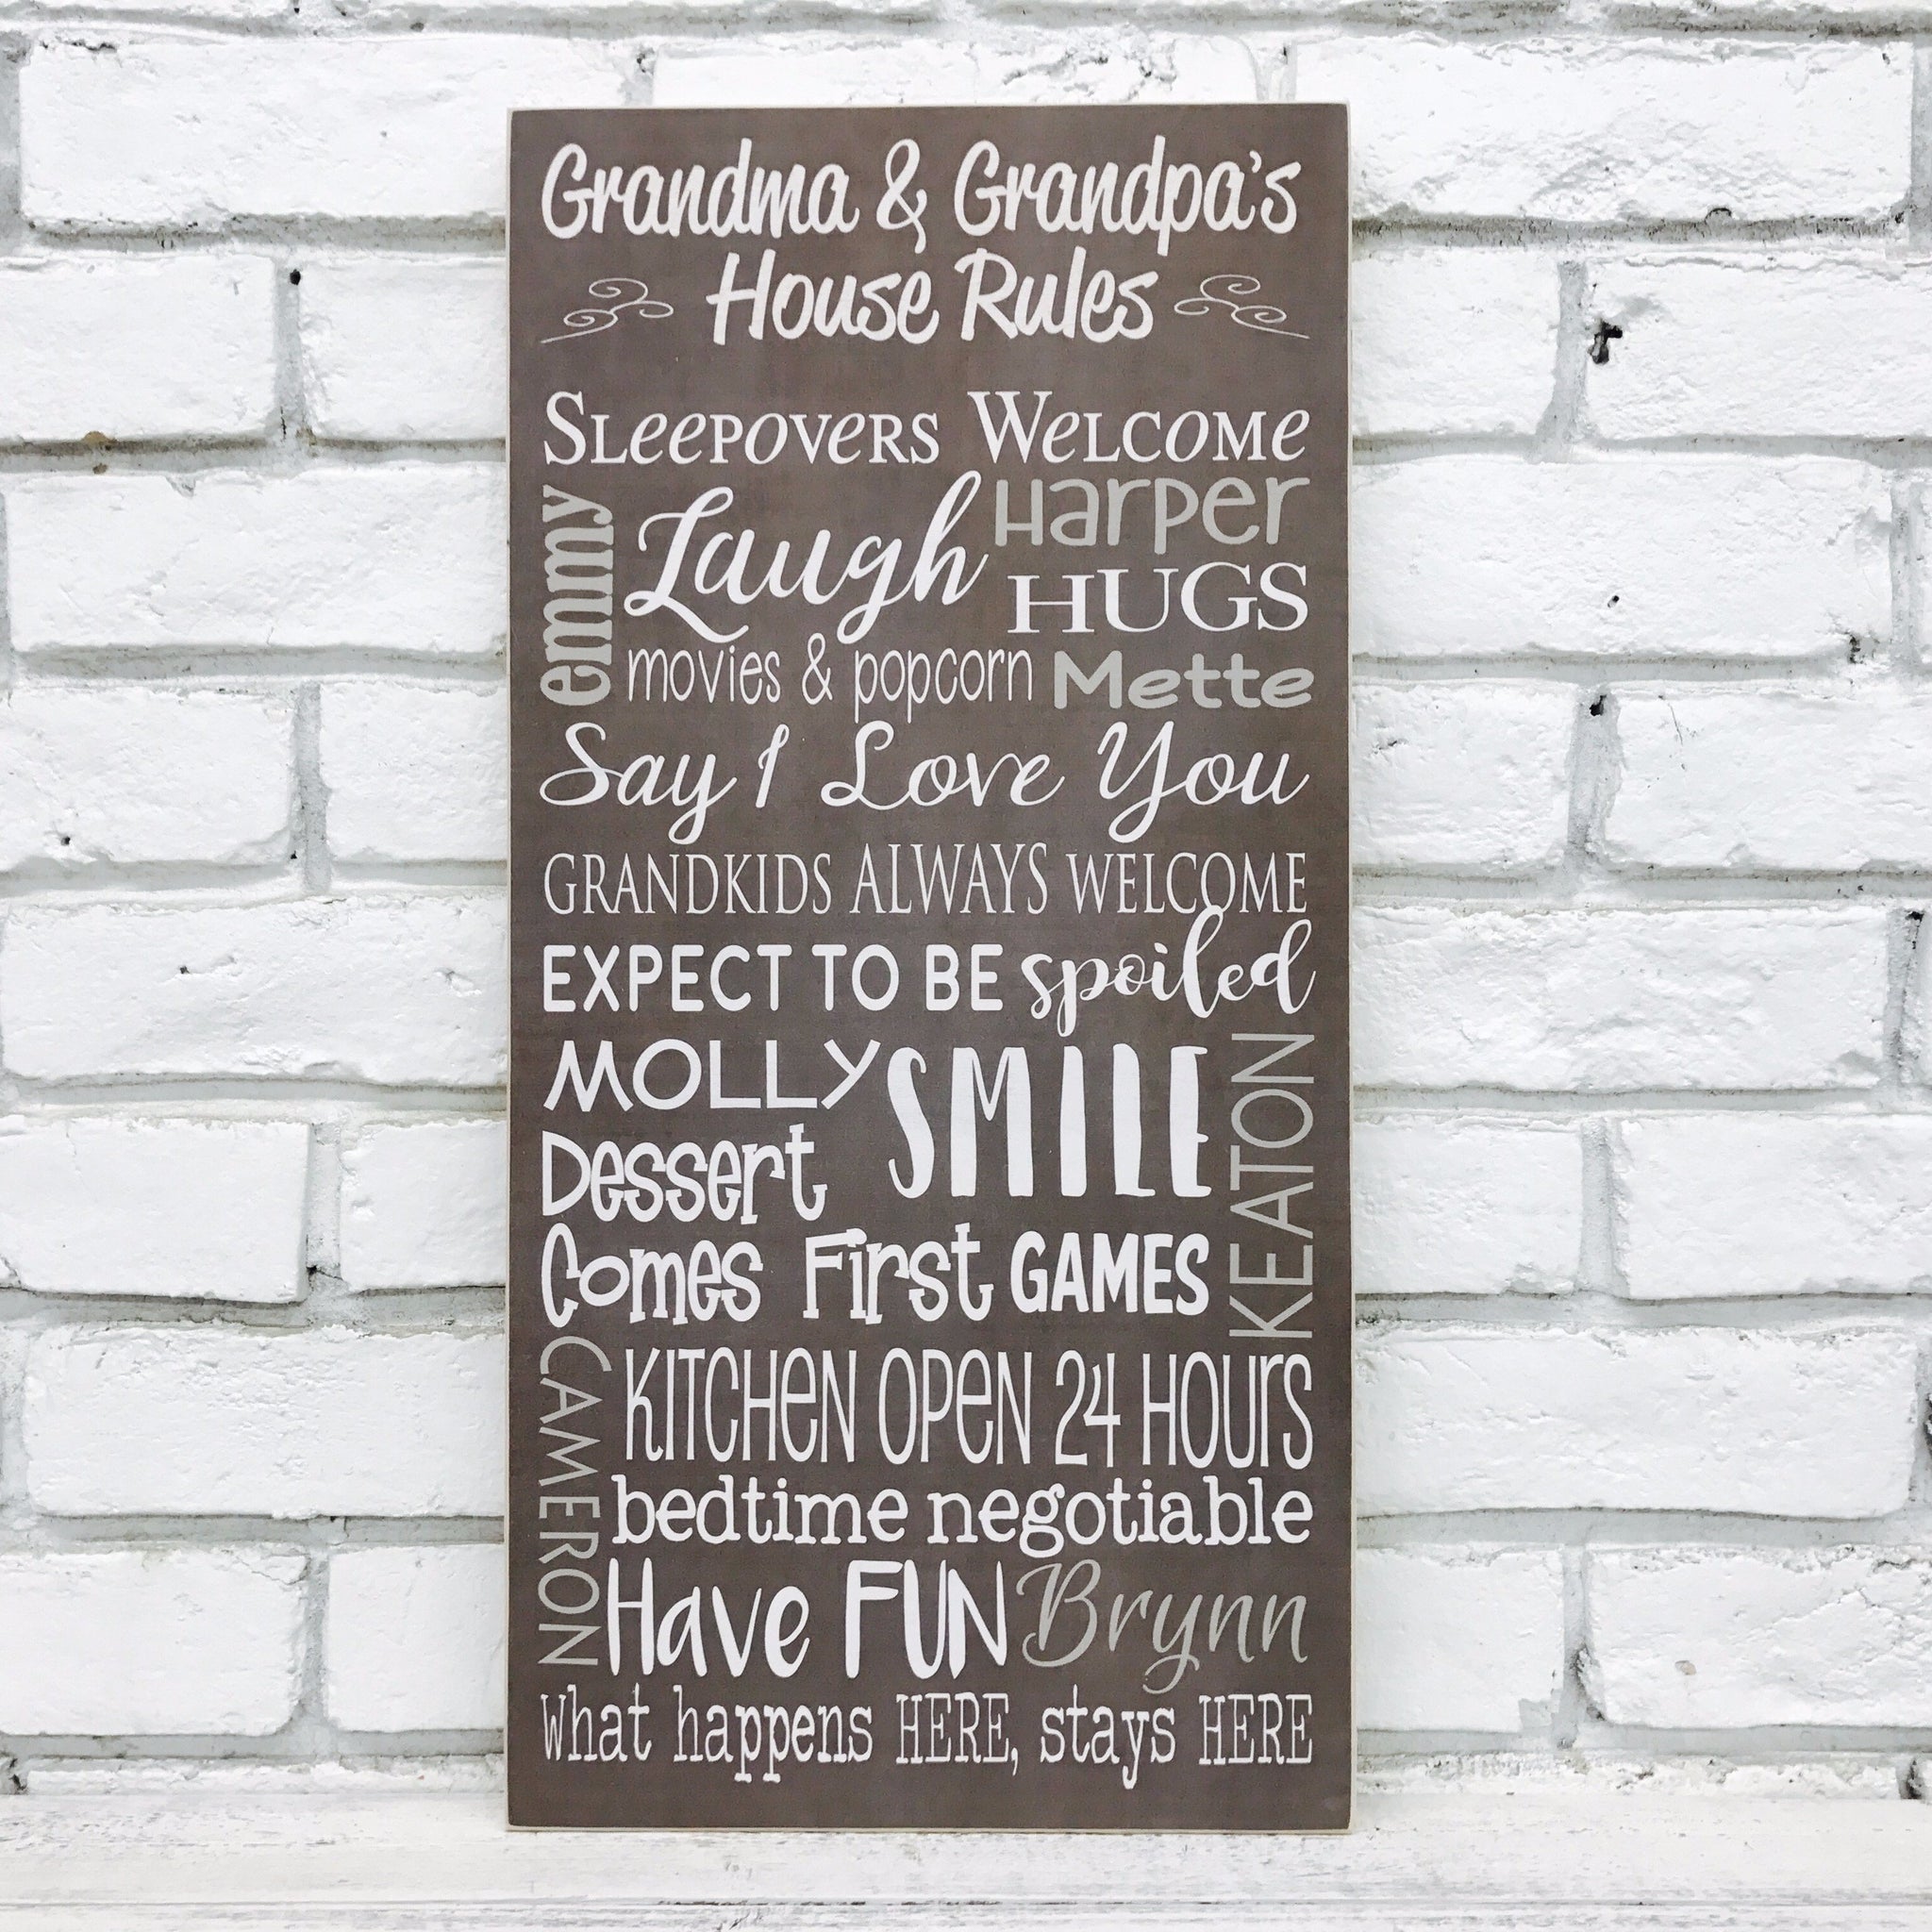 Grandma & Grandpa's
House Rules
Sleepovers Welcome
emmy
Laugh
Harper
HUGS
movies & popcorn
Mette
Say I Love You
GRANDKIDS ALWAYS WELCOME
EXPECT TO BE spoiled
MOLLY
SMILE
KEATON
Dessert
Comes First
GAMES
CAMERON
KITCHeN OPeN 24 HOUrs
bedtime negotiable
Have FUN
Brynn
What happens HERE, stays HERE